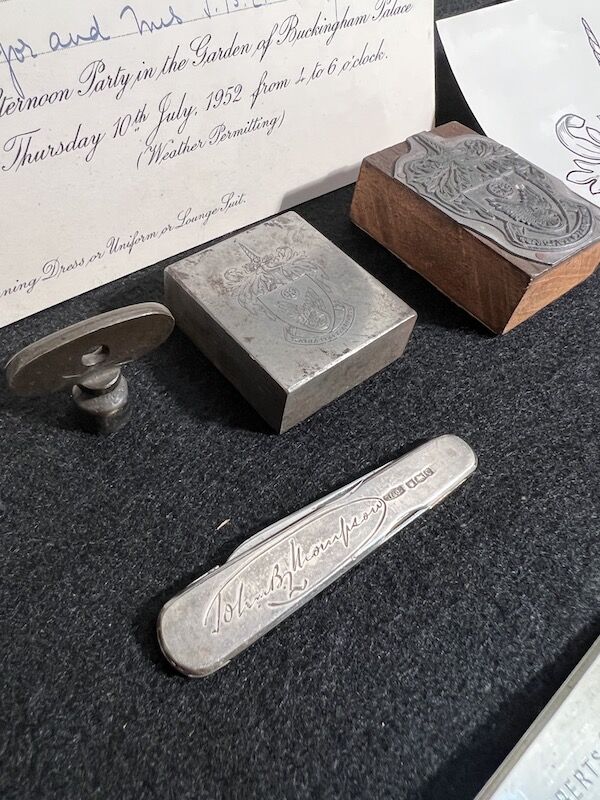 and Mrs J.B.
Afternoon Party in the Garden of Buckingham Palace
Thursday 10th July, 1952 from 4 to 6 o'clock.
(Weather Permitting)
ning Dress or Uniform or Lounge Suit.
John B. Thompson
BERTS